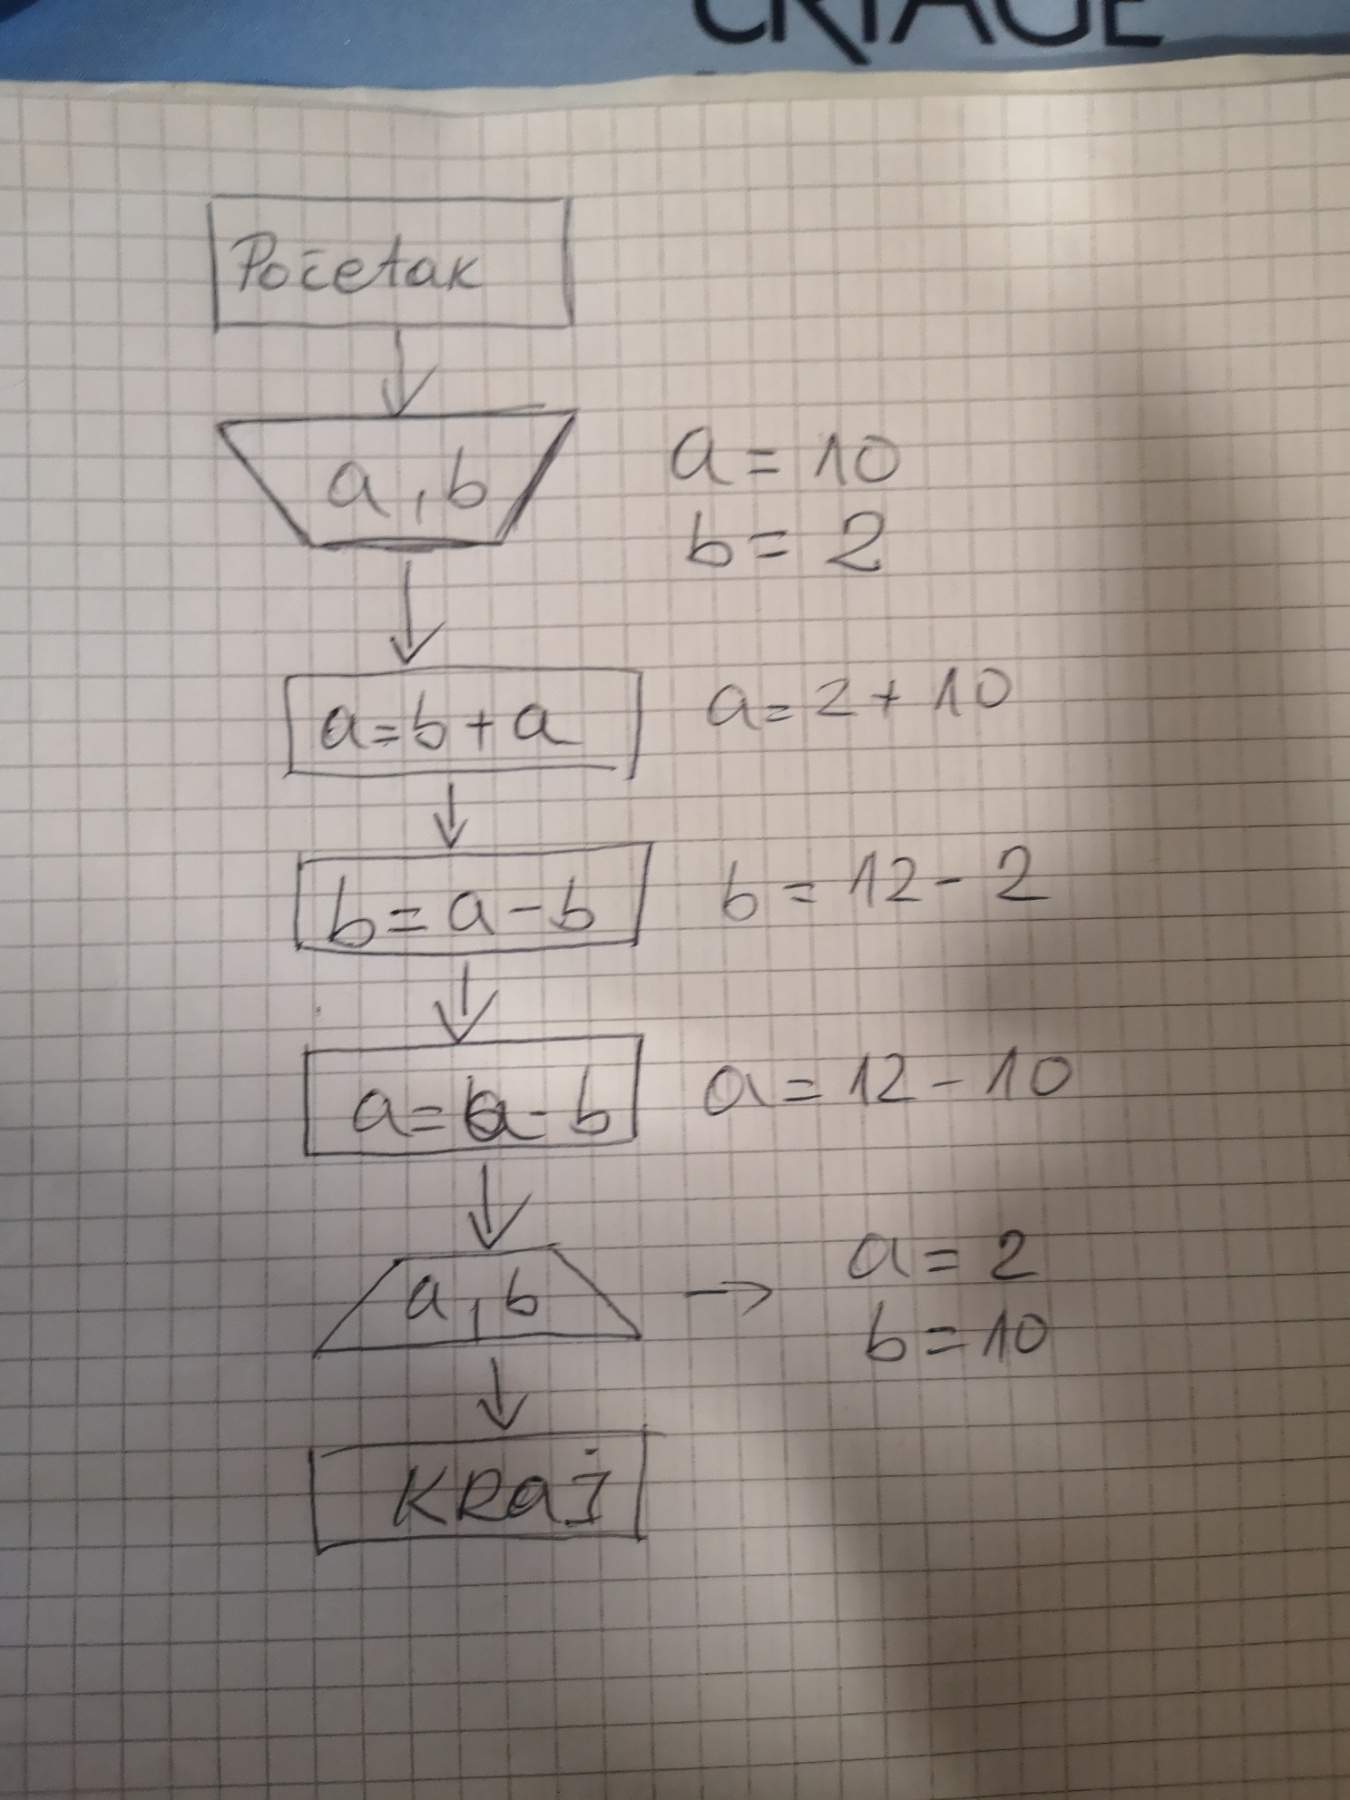 Početak
a, b
a = 10
b = 2
a = b + a
a = 2 + 10
b = a - b
b = 12 - 2
a = a - b
a = 12 - 10
a, b → a = 2
b = 10
KRaj